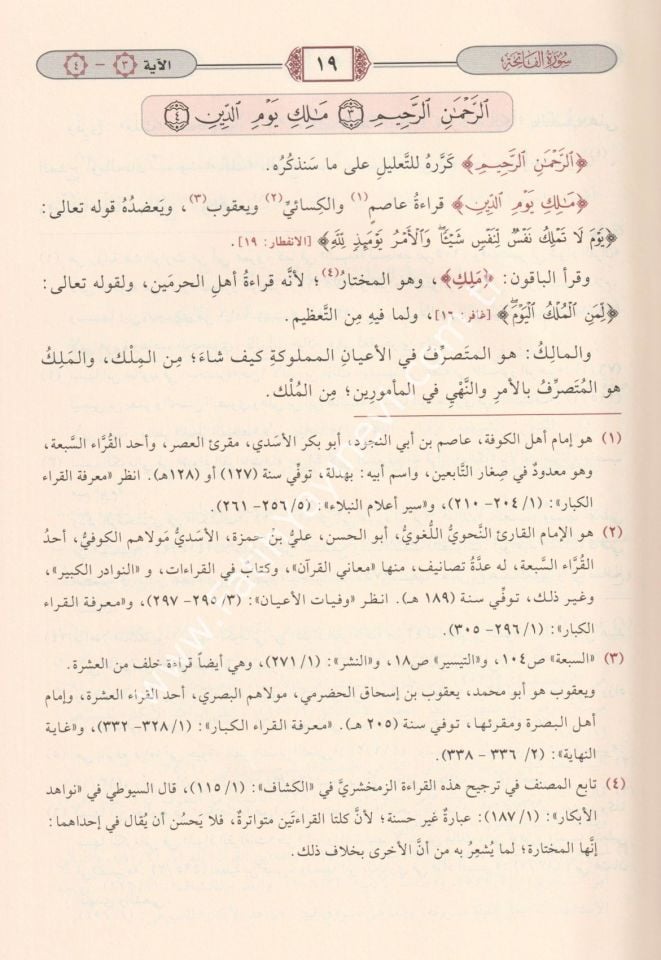 سُورَةُ الفَاتِحَةِ
١٩
الآية ٣ - ٤
الرَّحْمَٰنِ الرَّحِيمِ ۝٣ مَالِكِ يَوْمِ الدِّينِ ۝٤
﴿الرَّحْمَٰنِ الرَّحِيمِ﴾ كَرَّرهُ للتَّعليلِ على ما سَنذكُرُه.
﴿مَالِكِ يَوْمِ الدِّينِ﴾ قراءةُ عاصمٍ(١) والكسائيِّ(٢) ويعقوبَ(٣)، ويَعضدُهُ قوله تعالى:
﴿يَوْمَ لَا تَمْلِكُ نَفْسٌ لِّنَفْسٍ شَيْئًا وَالْأَمْرُ يَوْمَئِذٍ لِّلَّهِ﴾ [الانفطار: ١٩].
وقرأ الباقون: ﴿مَلِكِ﴾، وهو المختارُ(٤)؛ لأنَّه قراءةُ أهلِ الحرمَينِ، ولقوله تعالى:
﴿لِّمَنِ الْمُلْكُ الْيَوْمَ﴾ [غافر: ١٦]، ولما فيهِ مِن التَّعظيم.
والمالِكُ: هو المتَصرِّفُ في الأعيانِ المملوكةِ كيف شاءَ؛ مِن المِلْك، والمَلِكُ
هو المُتَصرِّفُ بالأمرِ والنَّهْيِ في المأمورِين؛ مِن المُلْك.
(١) هو إمام أهل الكوفة، عاصم بن أبي النجود، أبو بكر الأسدي، مقرئ العصر، وأحد القُرَّاء السَّبعة،
وهو معدودٌ في صِغار التَّابعين، واسم أبيه: بهدلة، توفِّي سنة (١٢٧) أو (١٢٨هـ). انظر «معرفة القراء
الكبار»: (١/ ٢٠٤- ٢١٠)، و«سير أعلام النبلاء»: (٥/ ٢٥٦- ٢٦١).
(٢) هو الإمام القارئ النَّحويُّ اللُّغويُّ، أبو الحسن، عليُّ بنُ حمزة، الأسَديُّ مَولاهم الكوفيُّ، أحدُ
القُرَّاء السَّبعة، له عدَّة تصانيف، منها «معاني القرآن»، وكتاب في القراءات، و «النوادر الكبير»،
وغير ذلك، توفِّي سنة (١٨٩ هـ). انظر «وفيات الأعيان»: (٣/ ٢٩٥- ٢٩٧)، و«معرفة القراء
الكبار»: (١/ ٢٩٦- ٣٠٥).
(٣) «السبعة» ص١٠٤، و«التيسير» ص١٨، و«النشر»: (١/ ٢٧١)، وهي أيضاً قراءة خلف من العشرة.
ويعقوب هو أبو محمد، يعقوب بن إسحاق الحضرمي، مولاهم البصري، أحد القراء العشرة، وإمام
أهل البصرة ومقرئها، توفي سنة (٢٠٥ هـ). «معرفة القراء الكبار»: (١/ ٣٢٨- ٣٣٢)، و«غاية
النهاية»: (٢/ ٣٣٦ - ٣٣٨).
(٤) تابع المصنف في ترجيح هذه القراءة الزمخشريَّ في «الكشاف»: (١/ ١١٥)، قال السيوطي في «نواهد
الأبكار»: (١/ ١٨٧): عبارةٌ غير حسنة؛ لأنَّ كلتا القراءتَين متواترة، فلا يَحسُن أن يُقال في إحداهما:
إنَّها المختارة؛ لما يُشعِرُ به من أنَّ الأخرى بخلاف ذلك.